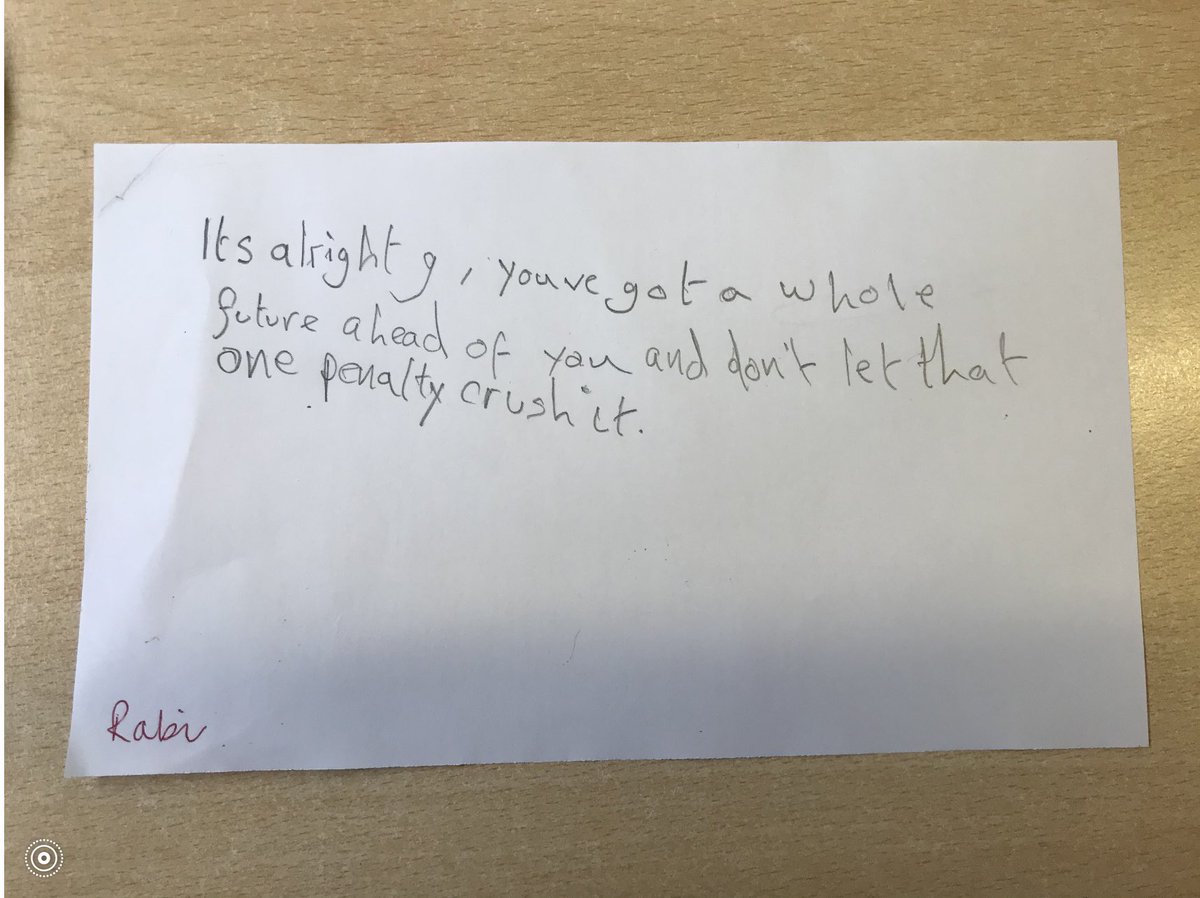 Its alright g, youve got a whole
future ahead of you and don't let that
one penalty crush it.
Rabi